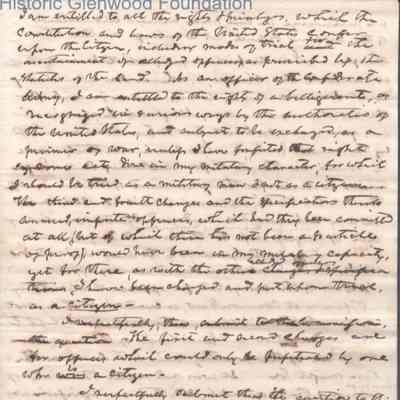 Historic Glenwood Foundation
I am entitled to all the rights & privileges, which the
Constitution and laws of the United States confer
upon the Citizen, includin modes of trial and the
of alleged offences as prescribed by the
Statutes of the land. As an officer of the Confederate
Army, I am entitled to the rights of a belligerent, as
recognized in various ways by the authorities of
the United States, and subject to be exchanged, as a
prisoner of war, unless I have forfeited that right
by some acts done in my military character, for which
I should be tried as a military man & not as a citizen.
The third and fourth charges and the specifications thereto
annexed, impute offences, which had they been committed
at all, (but of which there has not been a particle
of proof) would have been in my military capacity,
yet for these, as with the other charges & specifica
tions I have been charged and put upon trial,
as a citizen.
I respectfully, then submit to the
the question The first and second charges are
for offences which could only be perpetrated by one
who was a citizen.
I respectfully submit then the question to